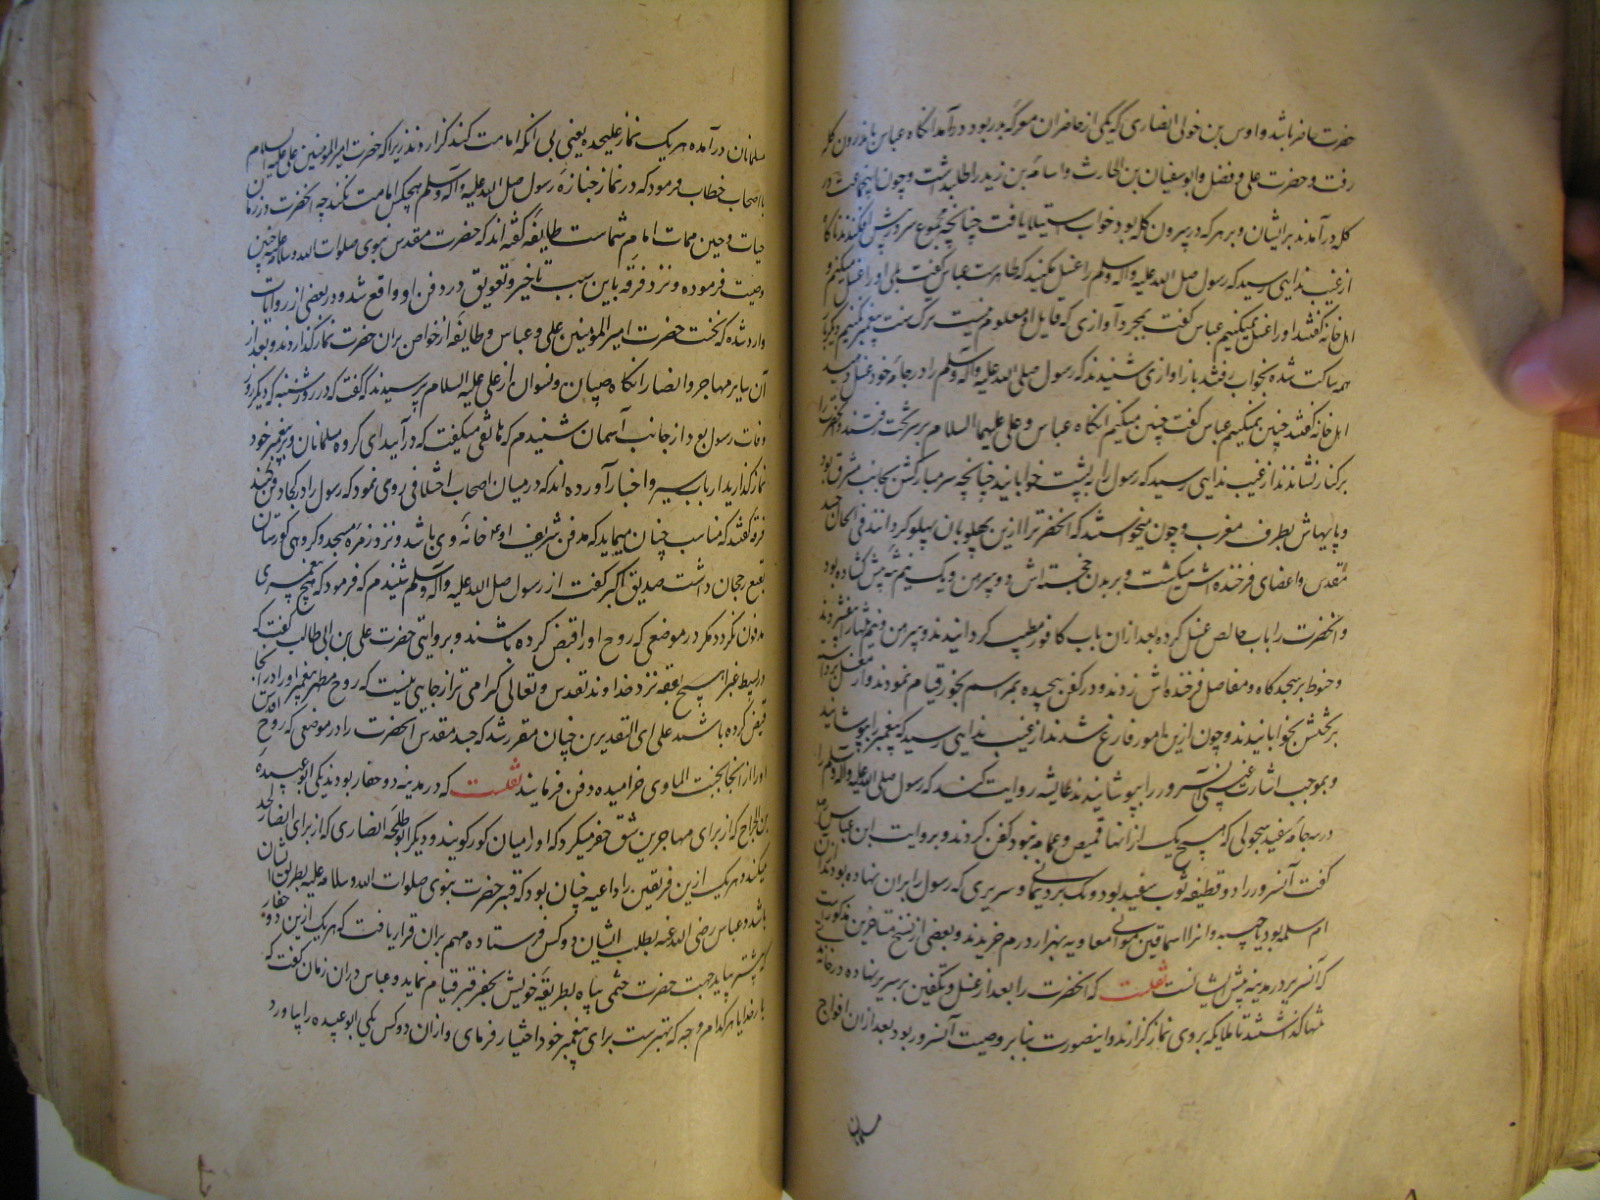 حضرت حاضر باشد و اوس بن خولی انصاری که یکی از حاضران معرکه بدر بود درآمد آنگاه عباس باندرون کله
رفت و حضرت علی و فضل و ابوسفیان بن الحارث و اسامه بن زید را طلبداشت و چون اینجماعت در
کله درآمدند بر ایشان و بر هر که در بیرون کله بود خواب استیلا یافت چنانچه مجموع سر در پیش افکندند ناگاه
از غیب ندایی رسید که رسول صلی الله علیه و آله وسلم را غسل مکنید که طاهرست عباس گفت بلی او را غسل میکنیم و
اهل خانه گفتند او را غسل نمیکنیم عباس گفت بمجرد آوازی که قایل او معلوم نیست ترک سنت پیغمبر نکنیم دیگر بار
همه ساکت شده بخواب رفتند باز آوازی شنیدند که رسول صلی الله علیه و آله وسلم را در جامه خود غسل دهید
اهل خانه گفتند چنین نمیکنیم عباس گفت چنین میکنیم آنگاه عباس و علی علیهما السلام بر سر تخت رفتند و آنحضرت را
بر کنار نشاندند از غیب ندایی رسید که رسول را به پشت خوابانید چنانچه سر مبارکش بجانب شرق بود
و پایهاش بطرف مغرب و چون میخواستند که آنحضرت را ازین پهلو بان پهلو گردانند فی الحال جسد
مقدس و اعضای فرخنده اش میگشت و بر بدن خجسته اش دو پیرهن و یک نیم ته پیش گشاده بود
و آنحضرت را باب خالص غسل کرده بعد از آن باب کافور مطیب گردانیدند و پیرهن و نیم تنها را فشردند
و حنوط بر سجدگاه و مفاصل فرخنده اش زدند و در کفن پیچیده بمراسم بخور قیام نمودند و از مغسل برداشته
بر تختش بخوابانیدند و چون ازین امور فارغ شدند از غیب ندایی رسید که پیغمبر را بپوشانید
و بموجب اشارت غیبی آنسرور را بپوشانیدند عایشه روایت کند که رسول صلی الله علیه و آله وسلم را
در سه جامه سفید سحولی که هیچ یک از آنها قمیص و عمامه نبود کفن کردند و بروایت ابن عباس
گفت آنسرور را دو قطیفه ثوب سفید بود و یک برد یمانی و سریری که رسول را بران نهاده بودند از آن
ام سلمه بود و آنرا اسما قین موالی معاویه بهزار درم خریدند و بعضی از نسخ متاخرین مذکورست
که آنسریر در مدینه پیش ایشانست نقلست که آنحضرت را بعد از غسل و تکفین بر سریر نهاده در خانه
تنها گذاشتند تا ملایکه بروی نماز گزارند و اینصورت بنابر وصیت آنسرور بود بعد از آن افواج
مسلمانان
مسلمانان درآمده هر یک نماز علیحده یعنی بی آنکه امامت کنند گزاروند زیرا که حضرت امیر المومنین علی علیه السلام
با اصحاب خطاب فرمود که در نماز جنازه رسول صلی الله علیه و آله وسلم هیچکس امامت نکند چه آنحضرت در زمان
حیات و حین ممات امام شماست طایفه گفته اند که حضرت مقدس نبوی صلوات الله و سلامه علیه چنین
وصیت فرموده و نزد فرقه باین سبب تاخیر و تعویق در دفن او واقع شد و در بعضی از روایات
وارد شده که نخست حضرت امیر المومنین علی و عباس و طایفه از خواص بران حضرت نماز گذاردند و بعد از
آن سایر مهاجر و انصار آنگاه صبیان و نسوان از علی علیه السلام پرسیدند که گفت که در روز شنبه که دیگر روز
وفات رسول بود از جانب آسمان شنیدم که هاتفی میگفت که درآیید ای گروه مسلمانان و بر پیغمبر خود
نماز گذارید ارباب سیر و اخبار آورده اند که در میان اصحاب اختلافی روی نمود که رسول را در کجا دفن کنند
فرقه گفتند که مناسب چنان مینماید که مدفن شریف او خانه وی باشد و نزد زمره مسجد و گروهی گورستان
بقیع رجحان داشت صدیق اکبر گفت از رسول صلی الله علیه و آله وسلم شنیدم که فرمود که هیچ پیغمبری
مدفون نگردد مگر در موضعی که روح او را قبض کرده باشند و بروایتی حضرت علی بن ابی طالب گفت که
در بسیط غبرا هیچ بقعه نزد خداوند تقدس و تعالی گرامی تر از جایی نیست که روح مطهر پیغمبر او را در آنجا
قبض کرده باشند علی ای التقدیرین چنان مقرر شد که جسد مقدس آنحضرت را در موضعی که روح اقدس
او را از آنجا بجنت الماوی خرامیده دفن فرمایند نقلست که در مدینه دو حفار بودند یکی ابو عبیده
بن الجراح که از برای مهاجرین شق حفر میکرد که او را میان گور گویند و دیگر ابو طلحه انصاری که از برای انصار لحد
میکند و هر یک ازین فریقین را داعیه چنان بود که قبر حضرت نبوی صلوات الله و سلامه علیه بطریق ایشان
باشد و عباس رضی الله عنه بطلب ایشان دو کس فرستاده مهم بران قرار یافت که هر یک ازین دو حفار
که پیشتر بیاید جهت حضرت ختمی پناه بطریقه خویش بحفر قبر قیام نماید و عباس دران زمان گفت که
بار خدایا هر کدام وجه که بهترست برای پیغمبر خود اختیار فرمای و ازان دو کس یکی ابو عبیده را بیاورد